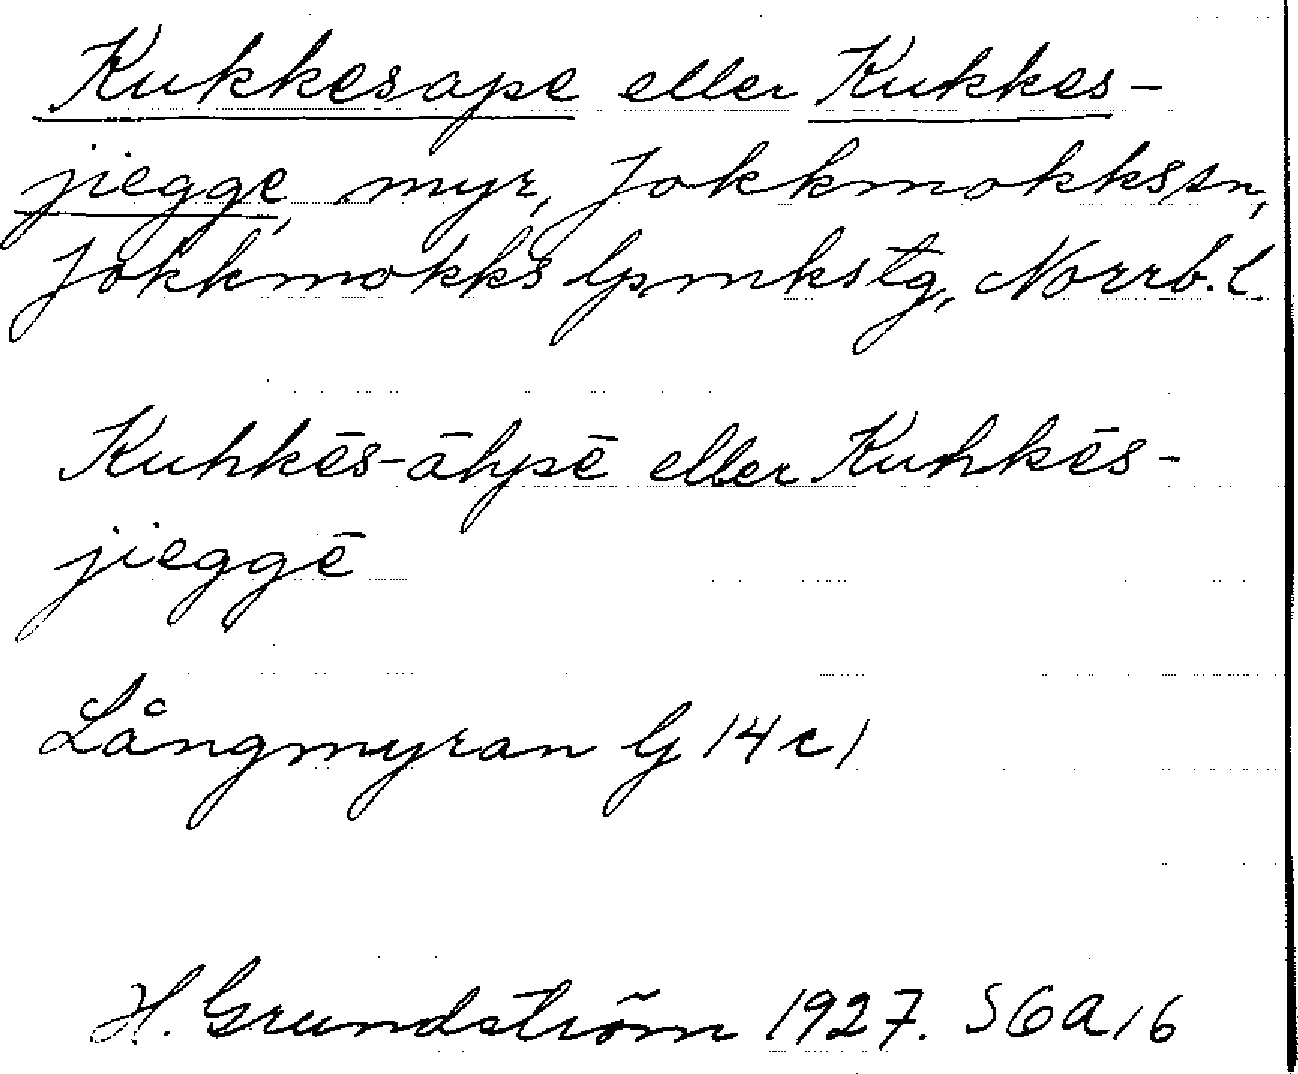 Kukkesape eller Kukkes-
jiegge, myr, Jokkmokks sn,
Jokkmokks lpmkstg, Norrb. l.
Kuhkēs-āhpē eller Kuhkēs-
jieggē
Långmyran G 14 c 1
H. Grundström 1927. S6a16